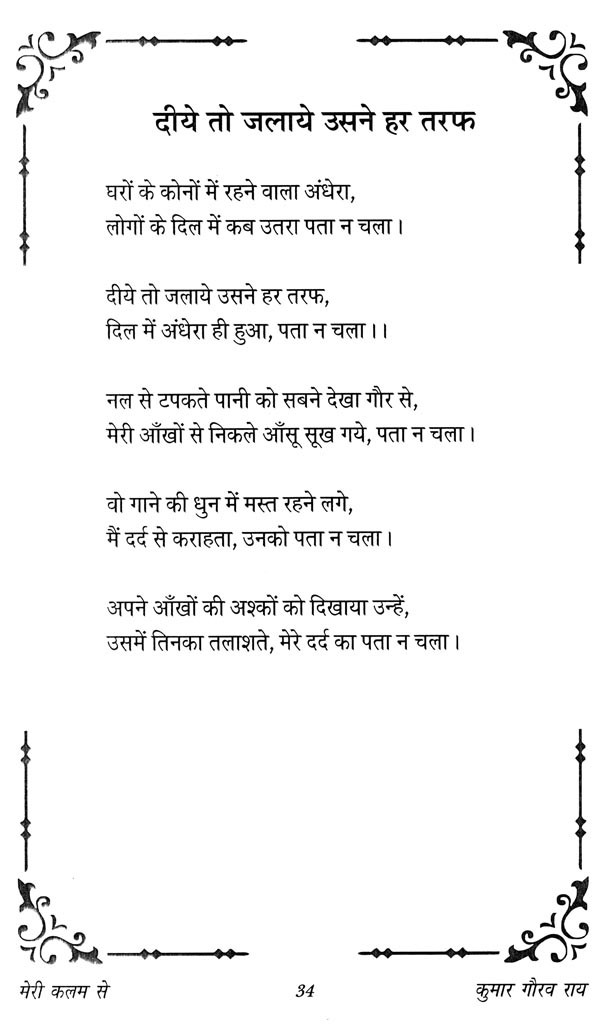 दीये तो जलाये उसने हर तरफ
घरों के कोनों में रहने वाला अंधेरा,
लोगों के दिल में कब उतरा पता न चला।
दीये तो जलाये उसने हर तरफ,
दिल में अंधेरा ही हुआ, पता न चला।।
नल से टपकते पानी को सबने देखा गौर से,
मेरी आँखों से निकले आँसू सूख गये, पता न चला।
वो गाने की धुन में मस्त रहने लगे,
मैं दर्द से कराहता, उनको पता न चला।
अपने आँखों की अश्कों को दिखाया उन्हें,
उसमें तिनका तलाशते, मेरे दर्द का पता न चला।
मेरी कलम से 34 कुमार गौरव राय